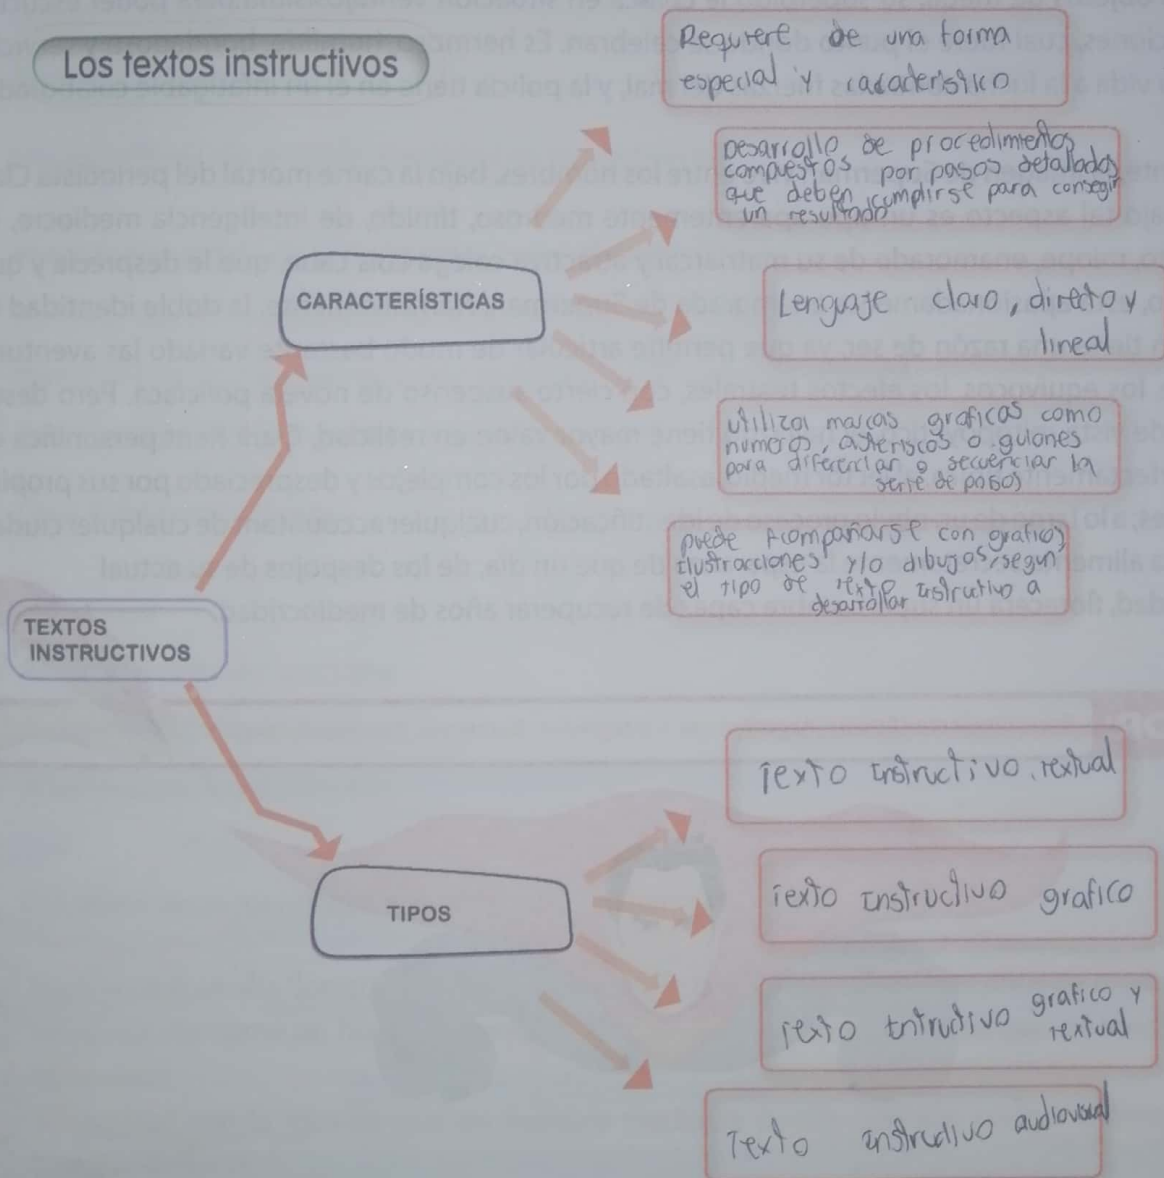 Los textos instructivos
Requiere de una forma
especial y característico
Desarrollo de procedimientos
compuestos por pasos detallados
que deben cumplirse para conseguir
un resultado
CARACTERÍSTICAS
Lenguaje claro, direto y
lineal
Utiliza marcas graficas como
numeros, asteriscos o guiones
para diferenciar o secuenciar la
serie de pasos
puede Acompañarse con graficos
ilustracciones y/o dibujos, segun
el tipo de texto instructivo a
desarrollar
TEXTOS
INSTRUCTIVOS
Texto instructivo textual
TIPOS
Texto instructivo grafico
Texto intructivo grafico y
textual
Texto instructivo audiovisual